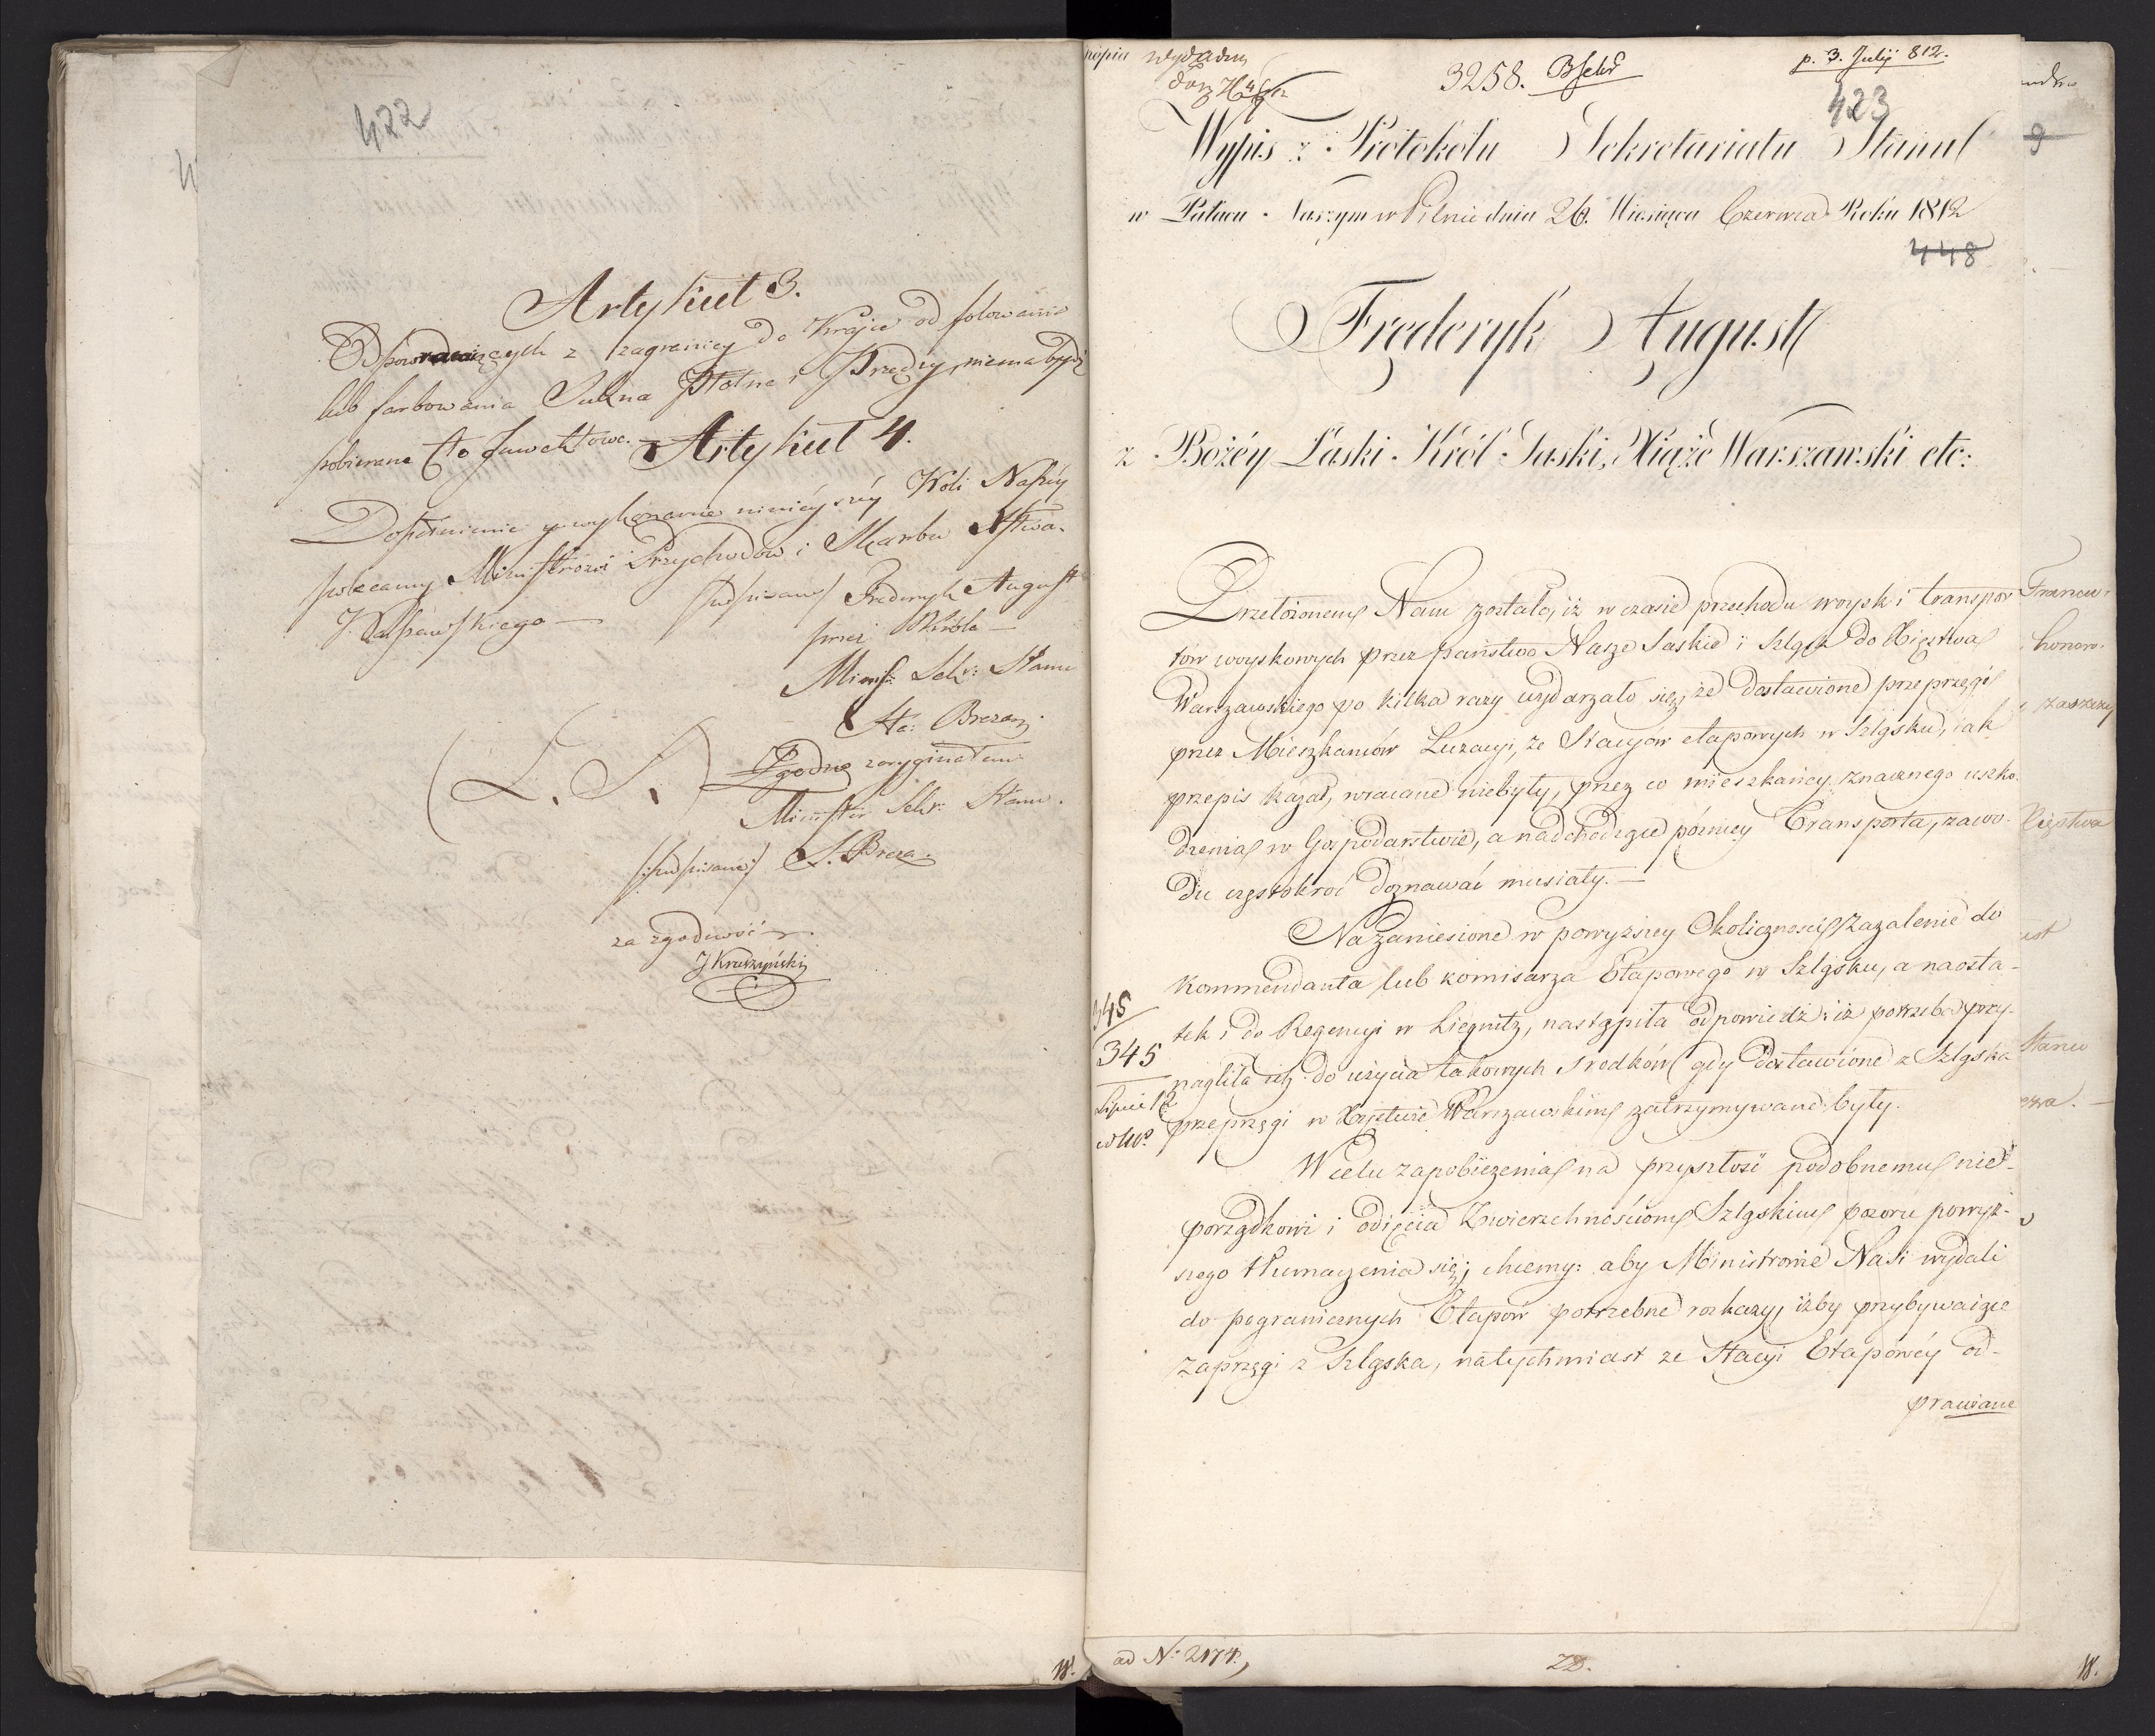 422
Artykuł 3.
Od powracaiących z zagranicy do Kraju od folowania
lub farbowania Sukna Płótna i Przędzy, niema bydź
pobierane Cło
Artykuł 4.
Dopełnienie y wykonanie ninieyszéy Woli Naszéy
polecamy Ministrowi Przychodów i Skarbu Xstwa
Warszawskiego —
/podpisano/ Frederyk August
przez Króla —
Minis: Sekr: Stanu
Sta: Breza
(L. S.) Zgodno z oryginałem
Minister Sekr: Stanu.
/:podpisano:/ S. Breza.
za zgodność
J Kraszyński
kopia wydadna
3258. BSekr
p. 3. Julij 812.
423
Wypis z Protokółu Sekretariatu Stanu
w Pałacu Naszym w Pilnie dnia 26. Miesiąca Czerwca Roku 1812
448
Fręderyk August
z Bożéy Łaski Król Saski, Xiąże Warszawski etc:
Przełożonem Nam zostało, iż w czasie przechodu woysk i transpor
tów woyskowych przez państwo Nasze Saskie i Szląsk do Xięstwa
Warszawskiego po kilka razy wydarzało się, że dostawione przeprzęgi
przez Mieszkańców Luzacyi, ze Stacyów etapowych w Szląsku, iak
przepis kazał, wracane niebyły, przez co mieszkańcy znacznego uszko-
dzenia w Gospodarstwie, a nadchodzące później Transporta, zawo-
du częstokroć doznawać musiały. —
Na zaniesione w powyższey Okoliczności Zażalenie do
Kommendanta lub komisarza Etapowego w Szląsku, a na osta-
tek i do Regencyi w Liegnitz, nastąpiła odpowiedź: iż potrzeba przy-
nagliła ich do użycia takowych srodków gdy dostawione z Szląska
przeprzęgi w Xięstwie Warszawskim zatrzymywane były.
W celu zapobieżenia na przyszłość podobnemu nie-
porządkowi i odięcia Zwierzchnościom Szląskim pozoru powyż-
szego tłumaczenia się; chcemy: aby Ministrowie Nasi wydali
do pogranicznych Etapów potrzebne rozkazy, iżby przybywaiące
zaprzęgi z Szląska, natychmiast ze Stacyi Etapowéy od-
prawiane
345
345
Lipiec 12
ad No 2174.
18.
Francu
honoro
zaszczy
Xięstwa
Stanu